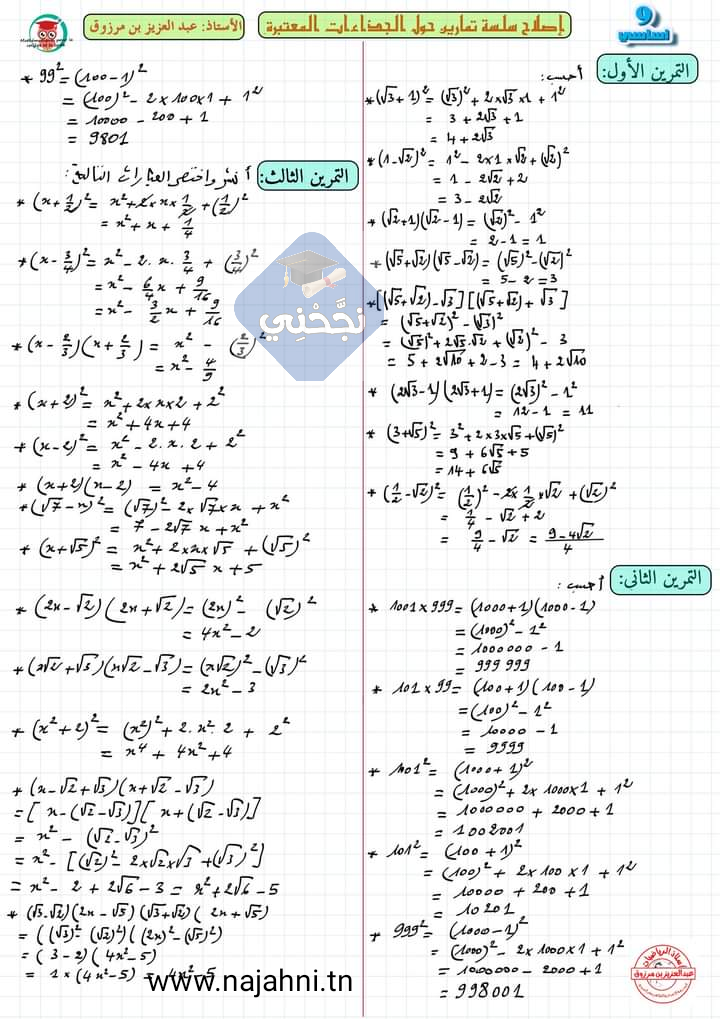 9 أساسي
إصلاح سلسة تمارين حول الجذاءات المعتبرة
الأستاذ: عبد العزيز بن مرزوق
التمرين الأول: أحسب:
* (√3 + 1)² = (√3)² + 2×√3×1 + 1²
= 3 + 2√3 + 1
= 4 + 2√3
* (1-√2)² = 1² - 2×1×√2 + (√2)²
= 1 - 2√2 + 2
= 3 - 2√2
* (√2+1)(√2-1) = (√2)² - 1²
= 2-1 = 1
* (√5+√2)(√5-√2) = (√5)² - (√2)²
= 5-2 = 3
* [(√5+√2)-√3][(√5+√2)+√3]
= (√5+√2)² - (√3)²
= (√5)² + 2√5.√2 + (√2)² - 3
= 5 + 2√10 + 2 - 3 = 4 + 2√10
* (2√3-1)(2√3+1) = (2√3)² - 1²
= 12-1 = 11
* (3+√5)² = 3² + 2×3×√5 + (√5)²
= 9 + 6√5 + 5
= 14 + 6√5
* (1/2 - √2)² = (1/2)² - 2×1/2×√2 + (√2)²
= 1/4 - √2 + 2
= 9/4 - √2 = (9-4√2)/4
التمرين الثاني: أحسب:
* 1001×999 = (1000+1)(1000-1)
= (1000)² - 1²
= 1000000 - 1
= 999 999
* 101×99 = (100+1)(100-1)
= (100)² - 1²
= 10000 - 1
= 9999
* 1001² = (1000+1)²
= (1000)² + 2×1000×1 + 1²
= 1000000 + 2000 + 1
= 1002001
* 101² = (100+1)²
= (100)² + 2×100×1 + 1²
= 10000 + 200 + 1
= 10201
* 999² = (1000-1)²
= (1000)² - 2×1000×1 + 1²
= 1000000 - 2000 + 1
= 998001
* 99² = (100-1)²
= (100)² - 2×100×1 + 1²
= 10000 - 200 + 1
= 9801
التمرين الثالث: أنشر واختصر العبارات التالية:
* (x+1/2)² = x² + 2×x×1/2 + (1/2)²
= x² + x + 1/4
* (x-3/4)² = x² - 2.x.3/4 + (3/4)²
= x² - 6/4 x + 9/16
= x² - 3/2 x + 9/16
* (x-2/3)(x+2/3) = x² - (2/3)²
= x² - 4/9
* (x+2)² = x² + 2×x×2 + 2²
= x² + 4x + 4
* (x-2)² = x² - 2.x.2 + 2²
= x² - 4x + 4
* (x+2)(x-2) = x² - 4
* (√7-x)² = (√7)² - 2×√7×x + x²
= 7 - 2√7 x + x²
* (x+√5)² = x² + 2×x×√5 + (√5)²
= x² + 2√5 x + 5
* (2x-√2)(2x+√2) = (2x)² - (√2)²
= 4x² - 2
* (x√2+√3)(x√2-√3) = (x√2)² - (√3)²
= 2x² - 3
* (x²+2)² = (x²)² + 2.x².2 + 2²
= x⁴ + 4x² + 4
* (x-√2+√3)(x+√2-√3)
= [x-(√2-√3)][x+(√2-√3)]
= x² - (√2-√3)²
= x² - [(√2)² - 2×√2×√3 + (√3)²]
= x² - 2 + 2√6 - 3 = x² + 2√6 - 5
* (√3-√2)(2x-√5)(√3+√2)(2x+√5)
= ((√3)² - (√2)²)((2x)² - (√5)²)
= (3-2)(4x²-5)
= 1×(4x²-5) = 4x²-5
نجَّحْنِي
www.najahni.tn
أستاذ الرياضيات
عبد العزيز بن مرزوق